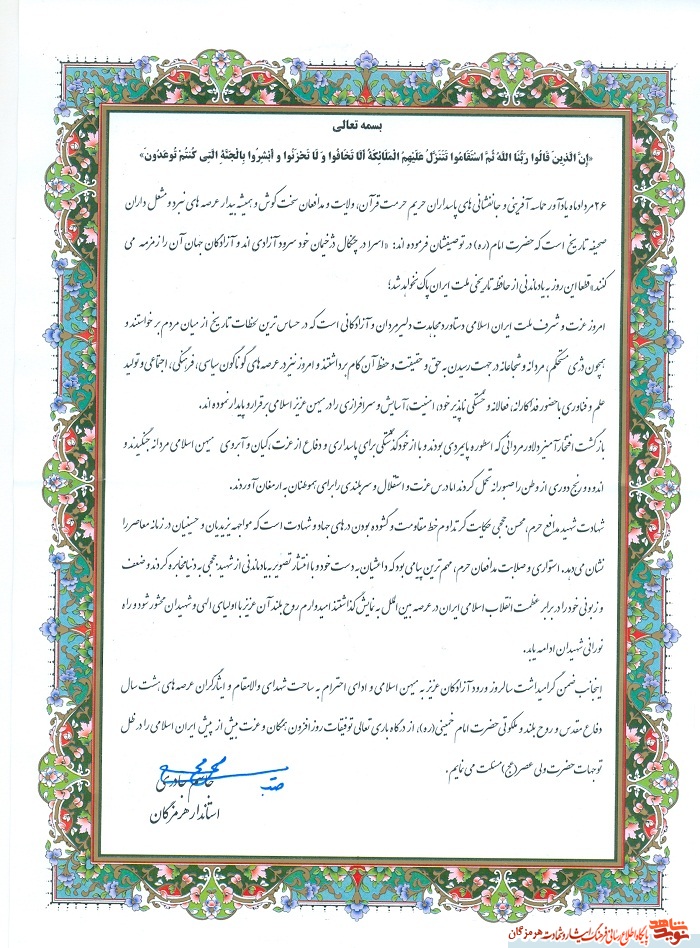 بسمه تعالی
«إِنَّ الَّذِینَ قَالُوا رَبُّنَا اللَّهُ ثُمَّ اسْتَقَامُوا تَتَنَزَّلُ عَلَیْهِمُ الْمَلَائِکَةُ أَلَّا تَخَافُوا وَ لَا تَحْزَنُوا و أَبْشِرُوا بِالْجَنَّةِ الَّتِی کُنْتُمْ تُوعَدُونَ»
۲۶ مردادماه یادآور حماسه آفرینی و جانفشانی های پاسداران حریم حرمت قرآن، ولایت و مدافعان سخت کوش و همیشه بیدار عرصه های نبرد و مشعل داران
صحیفه تاریخ است که حضرت امام (ره) در توصیفشان فرموده اند: «اسرا در چنگال دژخیمان خود سرود آزادی اند و آزادگان جهان آن را زمزمه می
کنند» قطعا این روز به یادماندنی از حافظه تاریخی ملت ایران پاک نخواهد شد؛
امروز عزت و شرف ملت ایران اسلامی دستاورد مجاهدت دلیرمردان و آزادگانی است که در حساس ترین لحظات تاریخ از میان مردم برخواستند و
همچون دژی مستحکم، مردانه و شجاعانه در جهت رسیدن به حق و حقیقت و حفظ آن گام برداشتند و امروز نیز در عرصه های گوناگون سیاسی، فرهنگی، اجتماعی و تولید
علم و فناوری با حضور فداکارانه، فعالانه و خستگی ناپذیر خود، امنیت، آسایش و سرافرازی را در میهن عزیز اسلامی برقرار و پایدار نموده اند.
بازگشت افتخارآمیز دلاورمردانی که اسطوره پایمردی بودند و با از خودگذشتگی برای پاسداری و دفاع از عزت، کیان و آبروی میهن اسلامی مردانه جنگیدند و
اندوه و رنج دوری از وطن را صبورانه تحمل کردند اما درس عزت و استقلال و سربلندی را برای هموطنان به ارمغان آوردند.
شهادت شهید مدافع حرم، محسن حججی حکایت گر تداوم خط مقاومت و گشوده بودن درهای جهاد و شهادت است که مواجهه یزیدیان و حسینیان در زمانه معاصر را
نشان می دهد. استواری و صلابت مدافعان حرم، مهم ترین پیامی بود که داعشیان به دست خود و با انتشار تصویر به یادماندنی از شهید حججی به دنیا مخابره کردند و ضعف
و زبونی خود را در برابر عظمت انقلاب اسلامی ایران در عرصه بین الملل به نمایش گذاشتند امیدوارم روح بلند آن عزیز با اولیای الهی و شهیدان محشور شود و راه
نورانی شهیدان ادامه یابد.
اینجانب ضمن گرامیداشت سالروز ورود آزادگان عزیز به میهن اسلامی و ادای احترام به ساحت شهدای والامقام و ایثارگران عرصه های هشت سال
دفاع مقدس و روح بلند و ملکوتی حضرت امام خمینی (ره)، از درگاه باری تعالی توفیقات روز افزون همگان و عزت بیش از پیش ایران اسلامی را در ظل
توجهات حضرت ولی عصر (عج) مسئلت می نمایم.
جاسم جادری
استاندار هرمزگان
نوید شاهد پایگاه اطلاع رسانی فرهنگ ایثار و شهادت هرمزگان